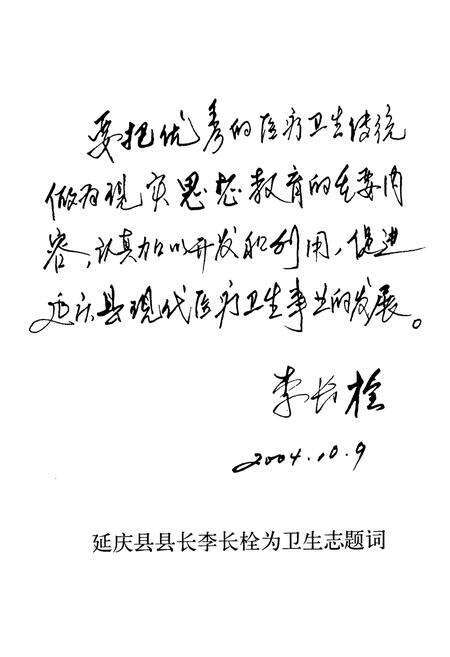 要把优秀的医疗卫生传统
做为现实思想教育的重要内
容,认真加以开发和利用,促进
延庆县现代医疗卫生事业的发展。
李长栓
2004.10.9
延庆县县长李长栓为卫生志题词